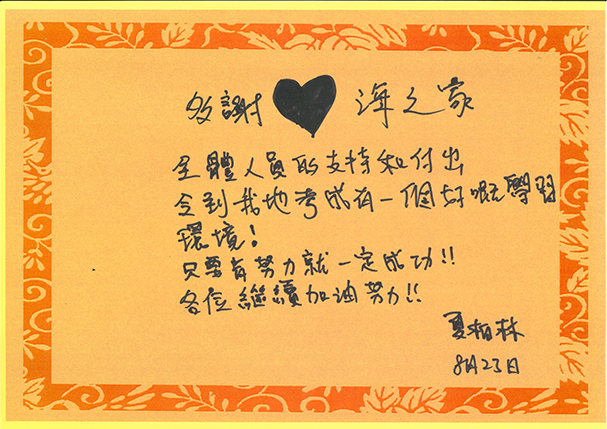 致謝 ♥ 海之家
全體人員的支持和付出
令到我地考成有一個好嘅學習
環境!
只要有努力就一定成功!!
各位繼續加油努力!!
夏柏林
8月23日